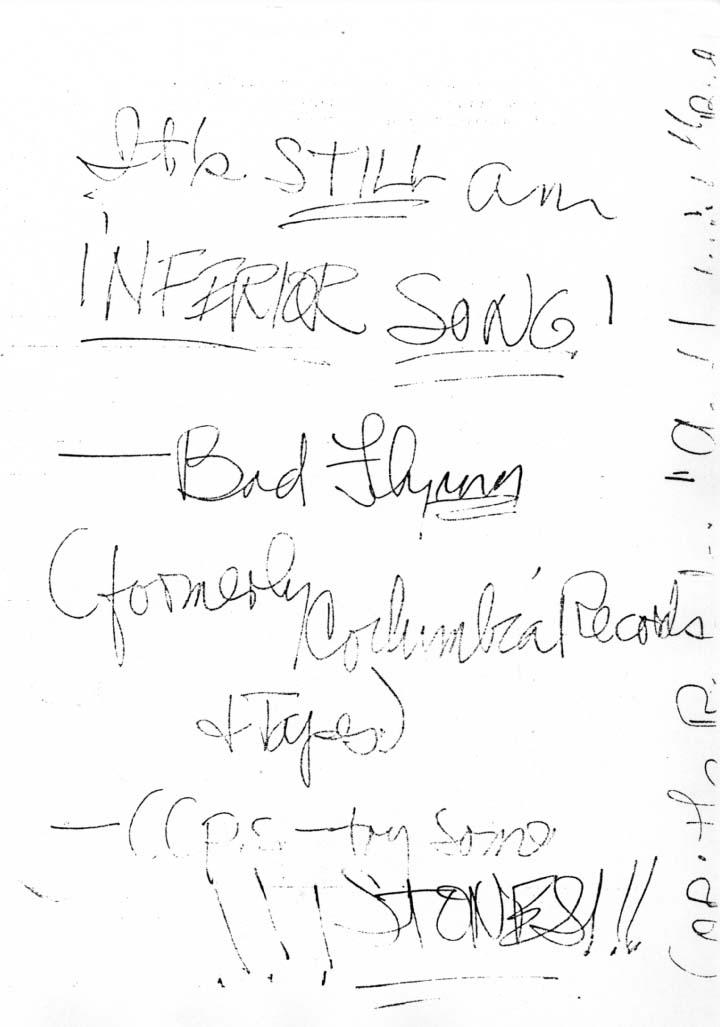 It's STILL an
INFERIOR SONG!
— Bad Flynnn
(formerly Columbia Records
& Tapes)
— (C.P.S. — try some
!!! STONES!!!